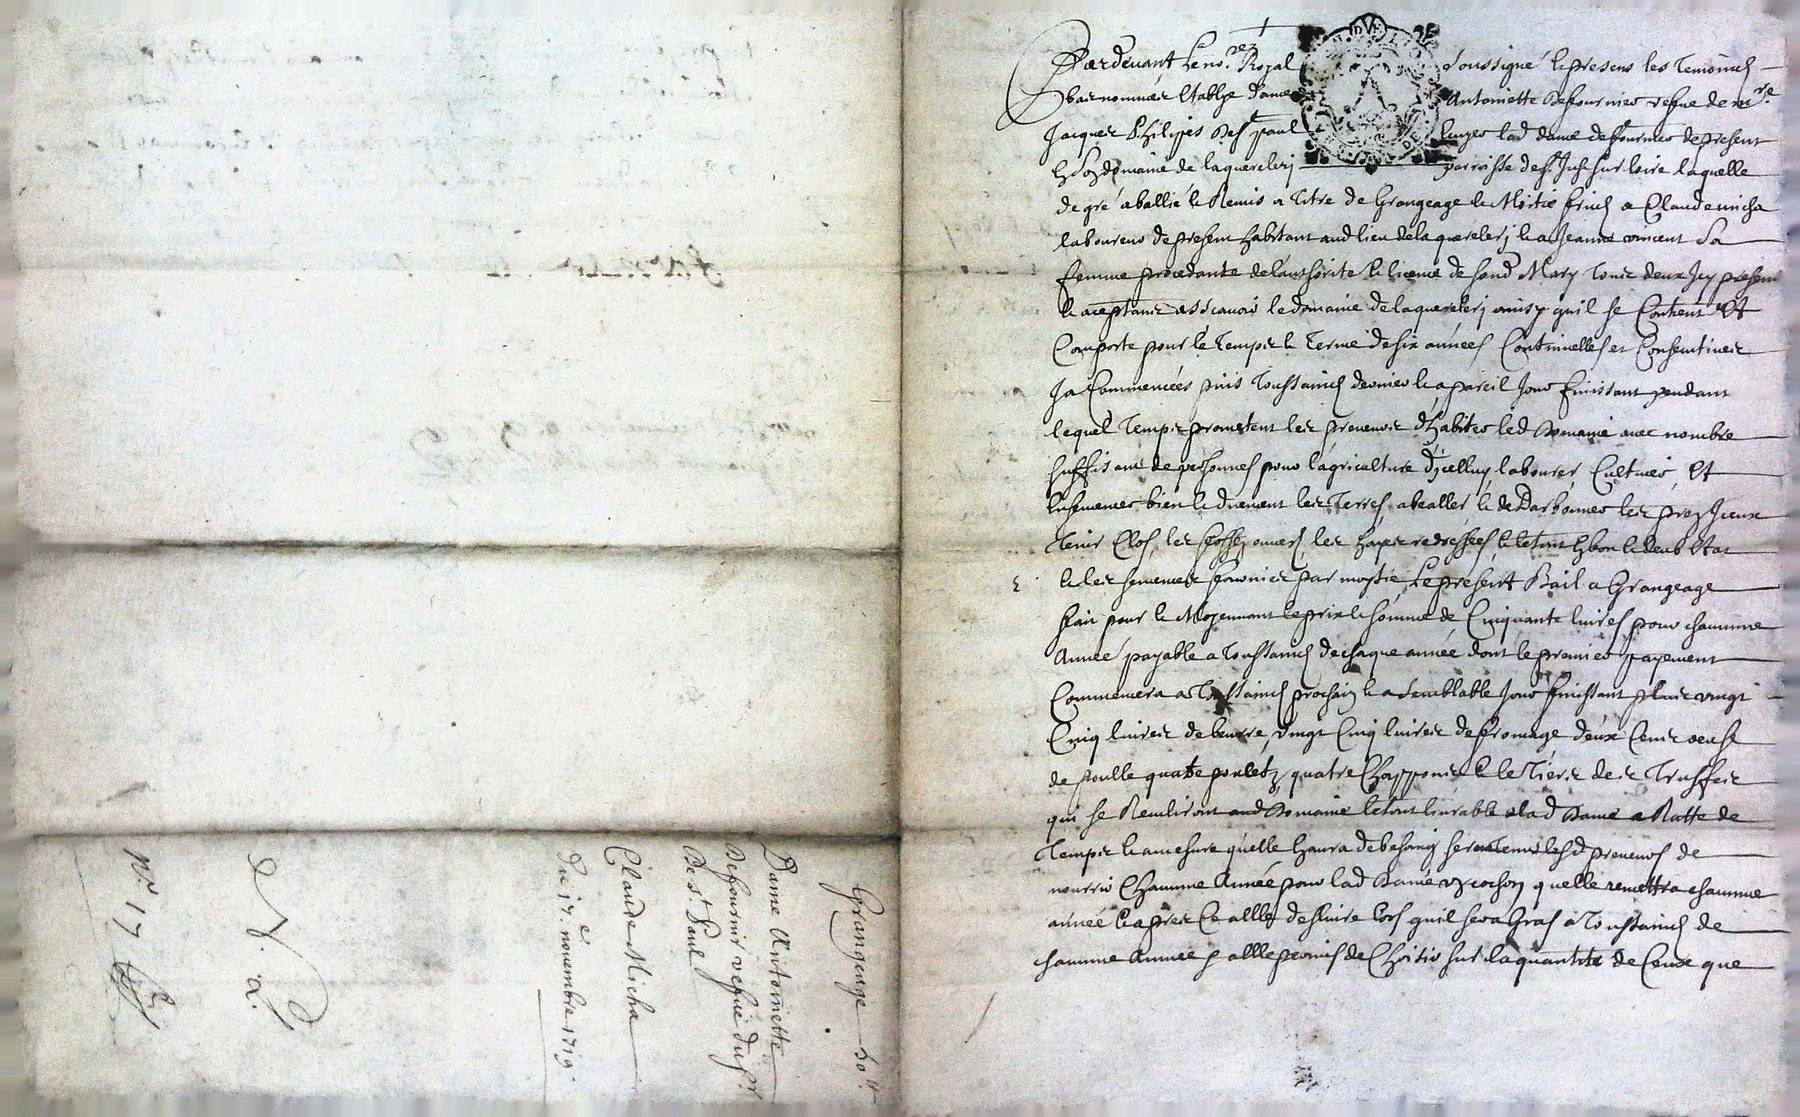 Pardevant Le no.re Royal soussigné & presens les Temoings
bas nommes Etablye dame Antoinette Defournier vefue de mre
Jacques Philipes De st paul lad dame defournier de present
En son domaine de laquerelerj parroisse de st Just sur loire laquelle
de gré a ballié & Remis a titre de Grangeage & Moitié fruis a Claude micha
laboureur de present habitant aud lieu de la querelerj & a Jeanne vincent Sa
femme procedante de lauthorité & licence de sond Mary Tous deux Jcy presens
& aceptans assçauoir le domaine de laquerelerj ainsy quil se Contient Et
Comporte pour le Temps & Terme de six années Continuelles et Consecutiues
Ja Commencées puis Toussaincs dernier & a pareil Jour finissant pendant
lequel Temps promettent les preneurs d'habiter led Domaine auec nombre
suffisant de personnes pour l'agriculture d'jcelluy labourer Cultiuer, Et
Ensemencer bien & duement les Terres les prez Jceux
Tenir Clos, les fossez les hayes redressées & le tout En bon & deub Etat
& les semences fournies par moytié, Le present Bail a Grangeage
fait pour & Moyennant le prix & somme de Cinquante liures pour chacunne
Année payable a Toussaincs de chaque année dont le premier payement
Commencera a Toussaincs prochain & a semblable Jour finissant plus vingt
Cinq liures de beurre, vingt Cinq liures de fromage deux Cens oeufs
de poulle quatre pouletz, quatre Chappons & le Tiers des Truffes
qui se Reculiront aud Domaine le tout liurable a lad Dame a Ratte de
Temps & a mesure qu'elle En aura de besoing seront Tenus lesd preneurs de
nourrir Chacunne Année pour lad Dame vn cochon quelle remettra chacunne
année & apres Ce alle de suire lors quil sera Gras a Toussaincs de
chacunne Année promis de Choisir sur la quantité de Ceux que
Grangeage 50 lt
Dame Antoinette
Defournier vefue du sr
De st Paul
Claude Micha
du 17e nouembre 1719.
N. 17